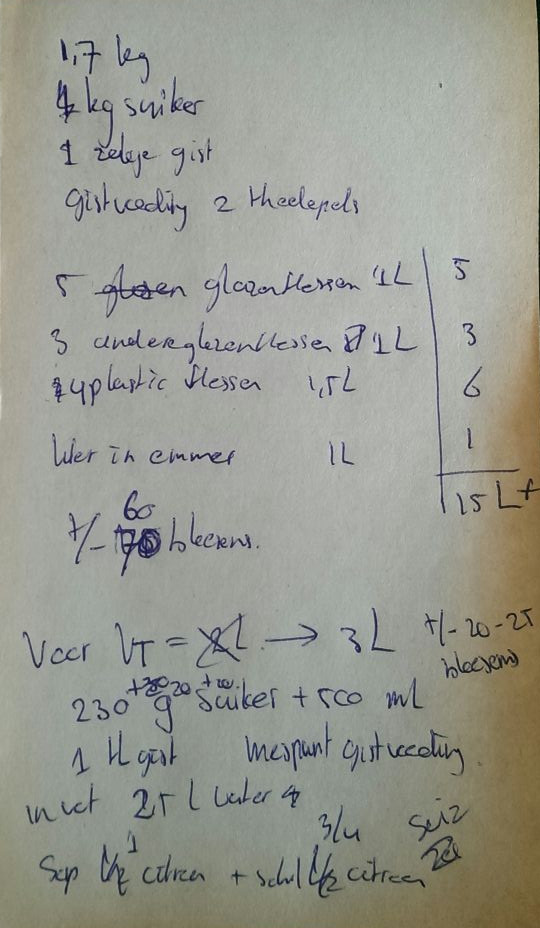 1,7 kg
4 kg suiker
1 zakje gist
gistvoeding 2 theelepels
5 glazen glazenflessen 1L 5
3 andereglazenflessen 1L 3
4 plastic flessen 1,5L 6
liter in emmer 1L 1
15 L +
60
+/- 70 bloesems.
Voor VT = 2L → 3L +/- 20-25
bloesems
+20 +20
230 g suiker + 500 ml
1 tl gist mespunt gistvoeding
in vat 25 L water
1 3/4
Sap 1/2 citroen + schil 1/2 citroen